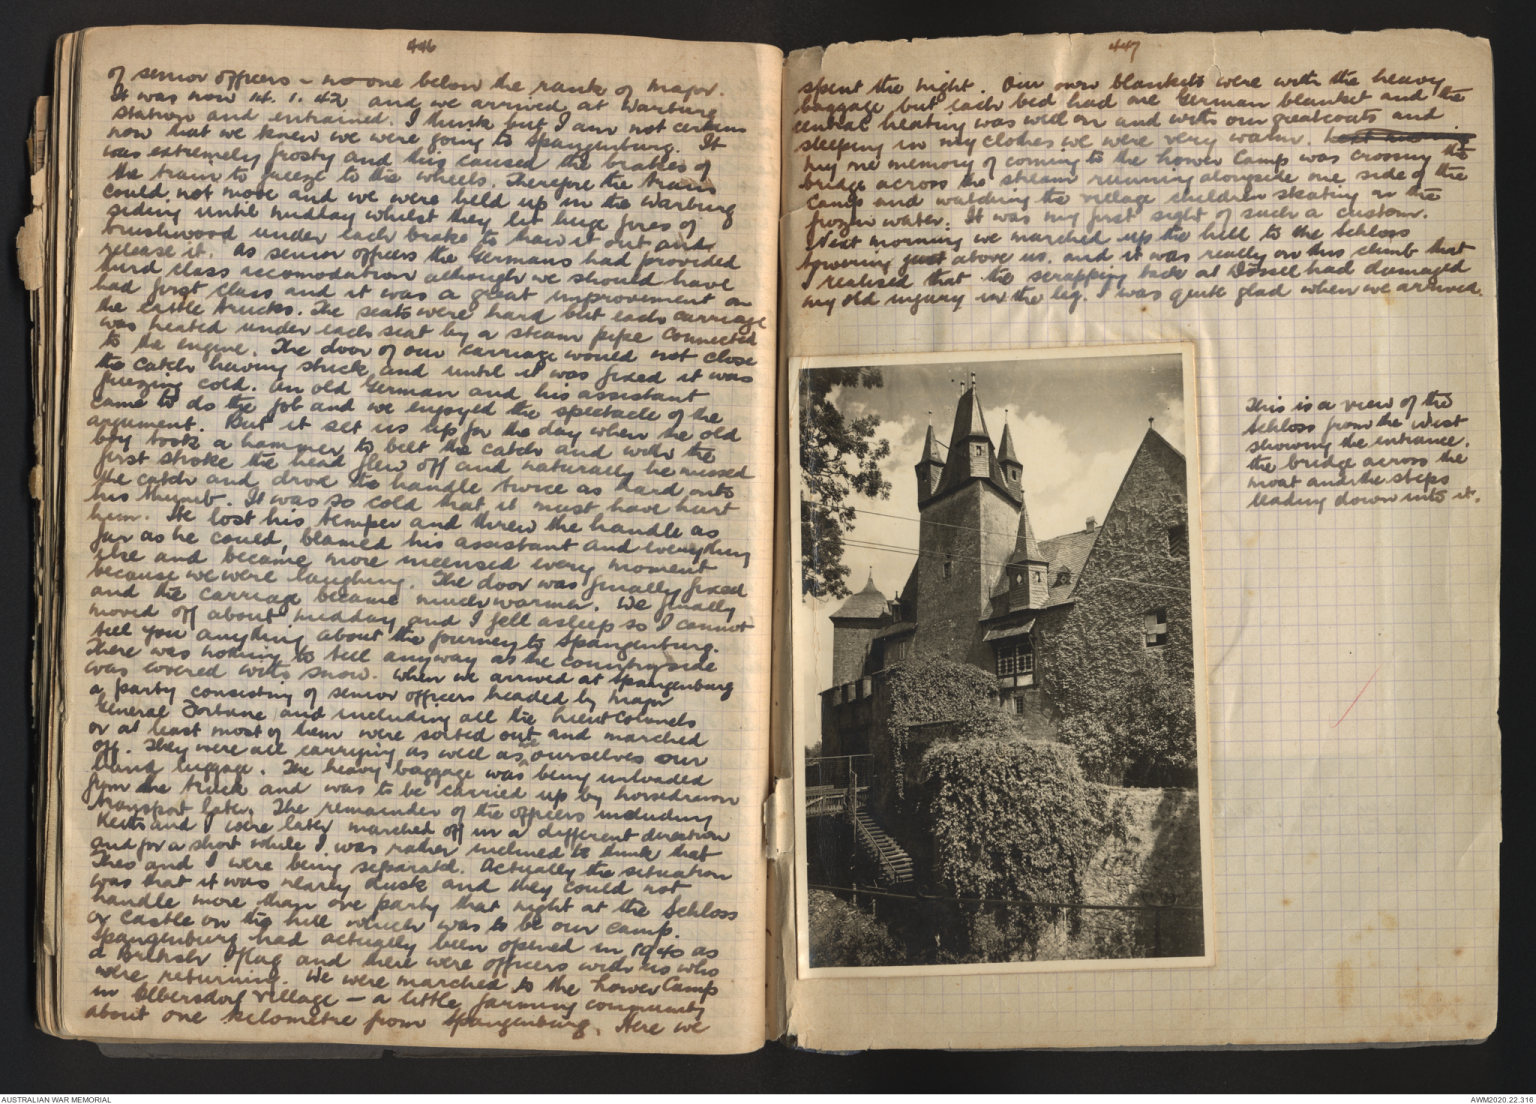 446
of senior officers - no one below the rank of major.
It was now 14.1.42 and we arrived at Warburg
station and entrained. I think but I am not certain
now that we knew we were going to Spangenburg. It
was extremely frosty and this caused the brakes of
the train to freeze to the wheels. Therefore the train
could not move and we were held up in the Warburg
siding until midday whilst they lit huge fires of
brushwood under each brake to thaw it out and
release it. As senior officers the Germans had provided
third class accomodation although we should have
had first class and it was a great improvement on
the cattle trucks. The seats were hard but each carriage
was heated under each seat by a steam pipe connected
to the engine. The door of our carriage would not close
the catch having stuck, and until it was fixed it was
freezing cold. An old German and his assistant
came to do the job and we enjoyed the spectacle of the
argument. But it set us up for the day when the old
boy took a hammer to belt the catch and with the
first stroke the head flew off and naturally he missed
the catch and drove the handle twice as hard onto
his thumb. It was so cold that it must have hurt
him. He lost his temper and threw the handle as
far as he could, blamed his assistant and everything
else and became more incensed every moment
because we were laughing. The door was finally fixed
and the carriage became much warmer. We finally
moved off about midday and I fell asleep so I cannot
tell you anything about the journey to Spangenburg.
There was nothing to tell anyway as the countryside
was covered with snow. When we arrived at Spangenburg
a party consisting of senior officers headed by Major
General Fortune and including all the Lieut Colonels
or at least most of them were sorted out and marched
off. They were all carrying as well as ourselves our
hand luggage. The heavy baggage was being unloaded
from the truck and was to be carried up by horsedrawn
transport later. The remainder of the officers including
Keith and I were later marched off in a different direction
and for a short while I was rather inclined to think that
Theo and I were being separated. Actually the situation
was that it was nearly dusk and they could not
handle more than one party that night at the Schloss
or Castle on the hill which was to be our camp.
Spangenburg had actually been opened in 1940 as
a British Oflag and there were officers with us who
were returning. We were marched to the Lower Camp
in Elbersdorf village - a little farming community
about one kilometre from Spangenburg. Here we
447
spent the night. Our own blankets were with the heavy
baggage but each bed had one German blanket and the
central heating was well on and with our greatcoats and
sleeping in my clothes we were very warm.
My one memory of coming to the Lower Camp was crossing the
bridge across the stream running alongside one side of the
Camp and watching the village children skating on the
frozen water. It was my first sight of such a custom.
Next morning we marched up the hill to the Schloss
towering just above us. and it was really on this climb that
I realised that the scrapping back at Dössel had damaged
my old injury in the leg. I was quite glad when we arrived.
This is a view of the
Schloss from the West
showing the entrance.
the bridge across the
moat and the steps
leading down into it.
AUSTRALIAN WAR MEMORIAL
AWM2020.22.316